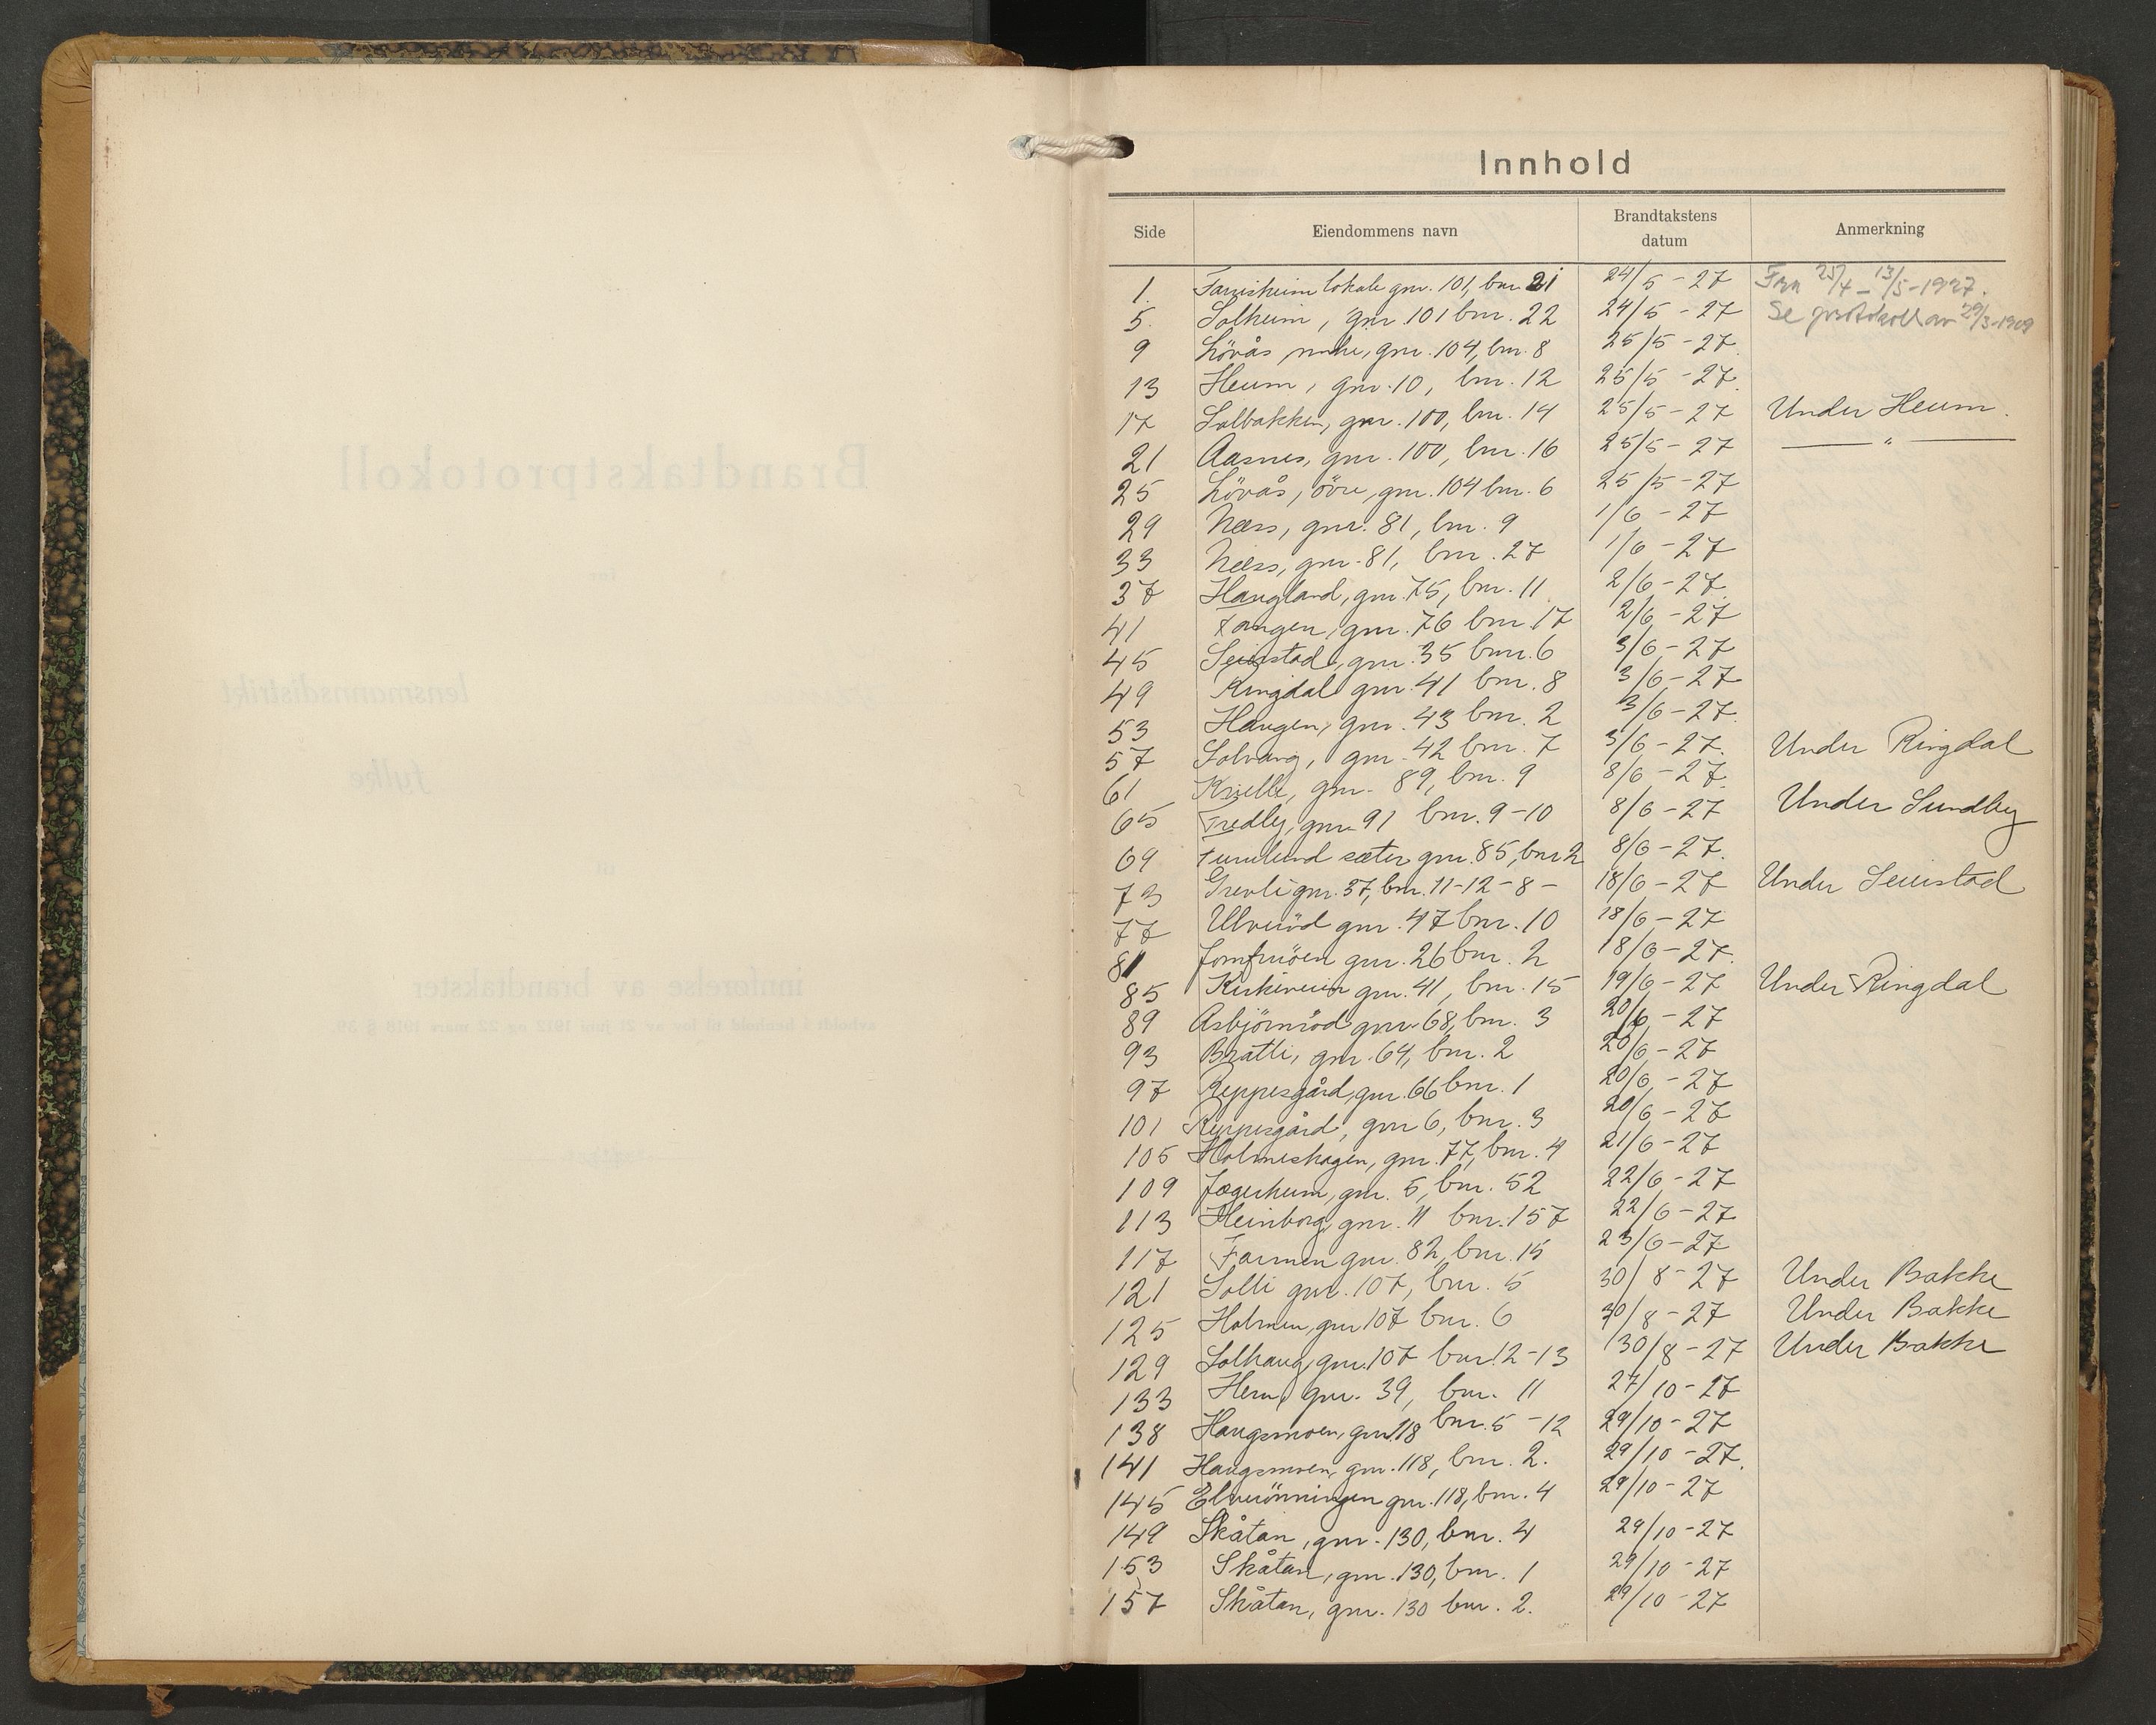 Innhold
Side Eiendommens navn Brandtakstens datum Anmerkning
1. Farrisheim lokale gnr. 101, bnr 21 24/5 - 27 Fra 25/4 - 13/5-1927.
5. Solheim, gnr 101 bnr. 22 24/5 - 27 Se protokoll av 29/3-1909
9 Lövås nedre, gnr. 104, bnr. 8 25/5 - 27.
13 Heum, gnr. 10, bnr. 12 25/5 - 27.
17 Solbakken, gnr. 100, bnr. 14 25/5 - 27 Under Heum.
21 Aasnes, gnr. 100, bnr. 16 25/5 - 27 — " —
25 Lövås, övre, gnr. 104 bnr. 6 25/5 - 27
29 Næss, gnr. 81, bnr. 9 1/6 - 27
33 Næss, gnr. 81, bnr. 27 1/6 - 27
37 Haugland, gnr. 75, bnr. 11 2/6 - 27
41 Tangen, gnr. 76 bnr 17 2/6 - 27
45 Seierstad, gnr. 35 bnr. 6 3/6 - 27
49 Ringdal gnr. 41 bnr. 8 3/6 - 27
53 Haugen, gnr. 43 bnr. 2 3/6 - 27.
57 Solvang, gnr. 42 bnr. 7 3/6 - 27. Under Ringdal
61 Kvelle, gnr. 89, bnr. 9 8/6 - 27.
65 Fredly, gnr 91 bnr. 9-10 8/6 - 27 Under Sundby
69 sæter gnr. 85, bnr 2 8/6 - 27.
73 Grevli gnr. 37, bnr. 11-12-8- 18/6 - 27 Under Seierstad
77 Ulveröd gnr. 47 bnr. 10 18/6 - 27
81 Jomfruöen gnr. 26 bnr. 2 18/6 - 27.
85 Kirkeveien gnr. 41, bnr. 15 19/6 - 27 Under Ringdal
89 Asbjörnröd gnr. 68, bnr. 3 20/6 - 27
93 Bratli, gnr. 64, bnr. 2 20/6 - 27
97 Reppesgård, gnr. 66 bnr. 1 20/6 - 27
101 Reppesgård, gnr 6, bnr. 3 20/6 - 27
105 Holmeshagen, gnr. 77, bnr. 4 21/6 - 27
109 Jægerheim, gnr. 5, bnr. 52 22/6 - 27
113 Heimborg gnr. 11 bnr. 157 22/6 - 27
117 Farmen gnr. 82, bnr. 15 23/6 - 27
121 Solli gnr. 107, bnr. 5 30/8 - 27 Under Bakke
125 Holmen, gnr 107 bnr. 6 30/8 - 27 Under Bakke
129 Solhaug, gnr. 107 bnr 12-13 30/8 - 27 Under Bakke
133 Hem, gnr. 39, bnr. 11 27/10 - 27
138 Haugsmoen, gnr 118 bnr. 5-12 29/10 - 27
141 Haugsmoen, gnr. 118, bnr. 2. 29/10 - 27.
145 Elverönningen gnr. 118, bnr. 4 29/10 - 27
149 Skåtan, gnr. 130, bnr. 4 29/10 - 27
153 Skåtan, gnr. 130, bnr. 1 29/10 - 27
157 Skåtan, gnr. 130 bnr. 2. 29/10 - 27